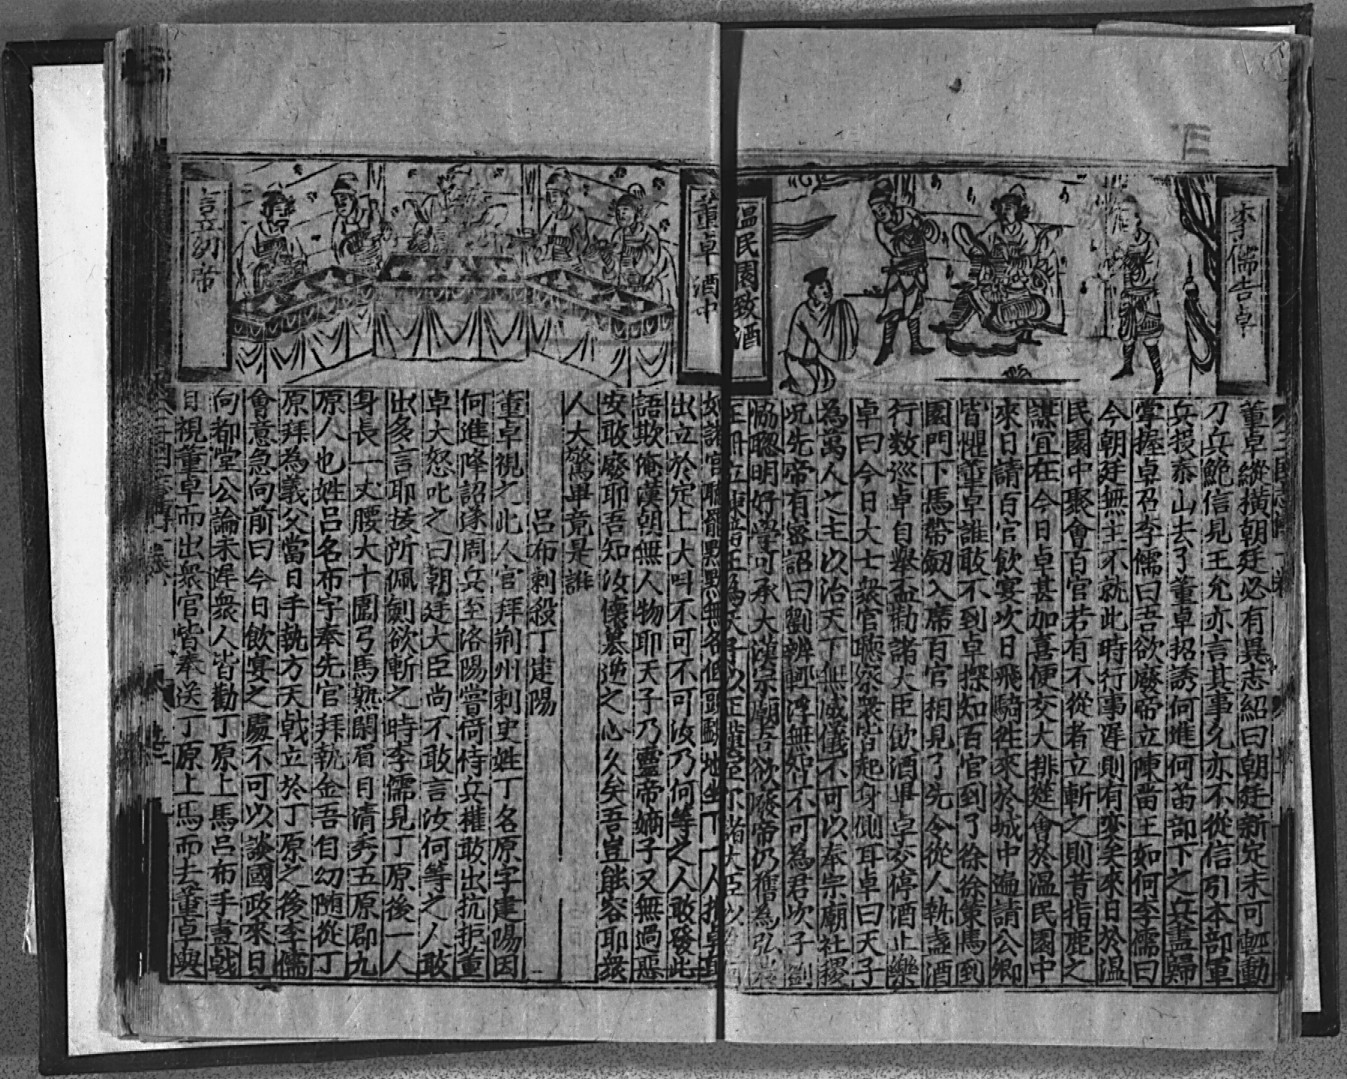 李儒告卓
温民園致酒
董卓縱橫朝廷必有異志紹曰朝廷新定未可輕動
刀兵鮑信見王允亦言其事允亦不從信引本部軍
兵投泰山去了董卓招誘何進何苗部下之兵盡歸
掌握卓召李儒曰吾欲廢帝立陳留王如何李儒曰
今朝廷無主不就此時行事遲則有変矣來日於温
民園中聚會百官若有不從者立斬之則昔指鹿之
謀宜在今日卓甚加喜便交大排筵會於温民園中
來日請百官飲宴次日飛騎往來於城中遍請公卿
皆懼董卓誰敢不到卓探知百官到了徐徐策馬到
園門下馬帶劔入席百官相見了先令從人執盞酒
行数巡卓自舉盃勸諸大臣飲酒畢卓交停酒止樂
卓曰今日大士衆官聽察衆皆起身側耳卓曰天子
為萬人之主以治天下無威儀不可以奉宗廟社稷
況先帝有密詔曰劉辨輕浮無知不可為君次子劉
協聰明好學可承大漢宗廟吾欲廢帝仍舊為弘農
王冊立陳留王為天子以正漢室尔諸大臣以
董卓酒中
言立幼帝
如諸官聽罷默默無各低頭
出立於定上大叫不可不可汝乃何等之人敢發此
語欺俺漢朝無人物耶天子乃靈帝嫡子又無過惡
安敢廢耶吾知汝懷墓逆之心久矣吾豈能容耶衆
人大驚畢竟是誰
呂布刺殺丁建陽
董卓視之此人官拜荆州刺史姓丁名原字建陽因
何進降詔遂周兵至洛陽嘗倚侍兵權敢出抗拒董
卓大怒叱之曰朝廷大臣尚不敢言汝何等之人敢
出多言耶拔所佩劍欲斬之時李儒見丁原後一人
身長一丈腰大十圍弓馬熟閑眉目清秀五原郡九
原人也姓呂名布字奉先官拜執金吾自幼随從丁
原拜為義父當日手執方天戟立於丁原之後李儒
會意急向前曰今日飲宴之處不可以談國政來日
向都堂公論未遲衆人皆勸丁原上馬呂布手𢭏戟
目視董卓而出衆官皆奉送丁原上馬而去董卓與